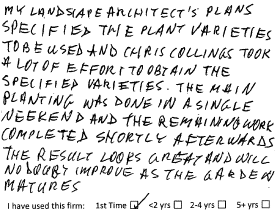 MY LANDSCAPE ARCHITECT'S PLANS
SPECIFIED THE PLANT VARIETIES
TO BE USED AND CHRIS COLLINGS TOOK
A LOT OF EFFORT TO OBTAIN THE
SPECIFIED VARIETIES. THE MAIN
PLANTING WAS DONE IN A SINGLE
WEEKEND AND THE REMAINING WORK
COMPLETED SHORTLY AFTERWARDS
THE RESULT LOOKS GREAT AND WILL
NO DOUBT IMPROVE AS THE GARDEN
MATURES
I have used this firm: 1st Time ☑ <2 yrs ☐ 2-4 yrs ☐ 5+ yrs ☐